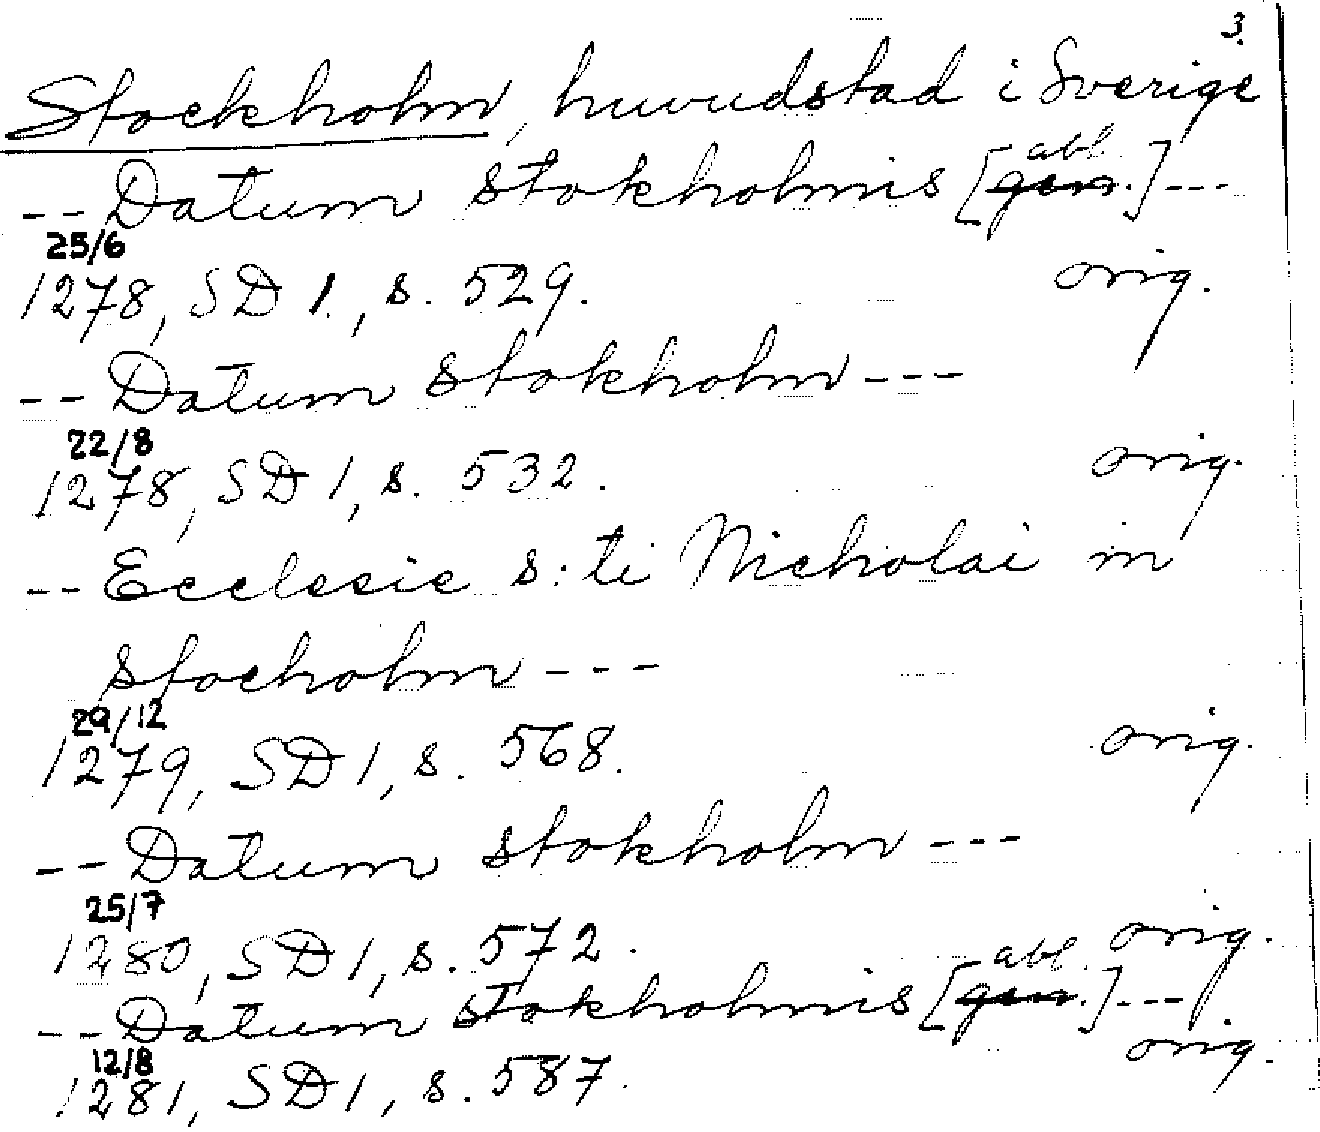 3.
Stockholm, huvudstad i Sverige
abl.
-- Datum Stokholmis [gen.] ---
25/6
1278, SD 1., s. 529. orig.
-- Datum Stokholm ---
22/8
1278, SD 1, s. 532. orig.
-- Ecclesie s:ti Nicholai in
Stocholm ---
29/12
1279, SD 1, s. 568. orig.
-- Datum Stokholm ---
25/7
1280, SD 1, s. 572. orig.
abl.
-- Datum Stokholmis [gen.] ---
12/8 orig.
1281, SD 1, s. 587.